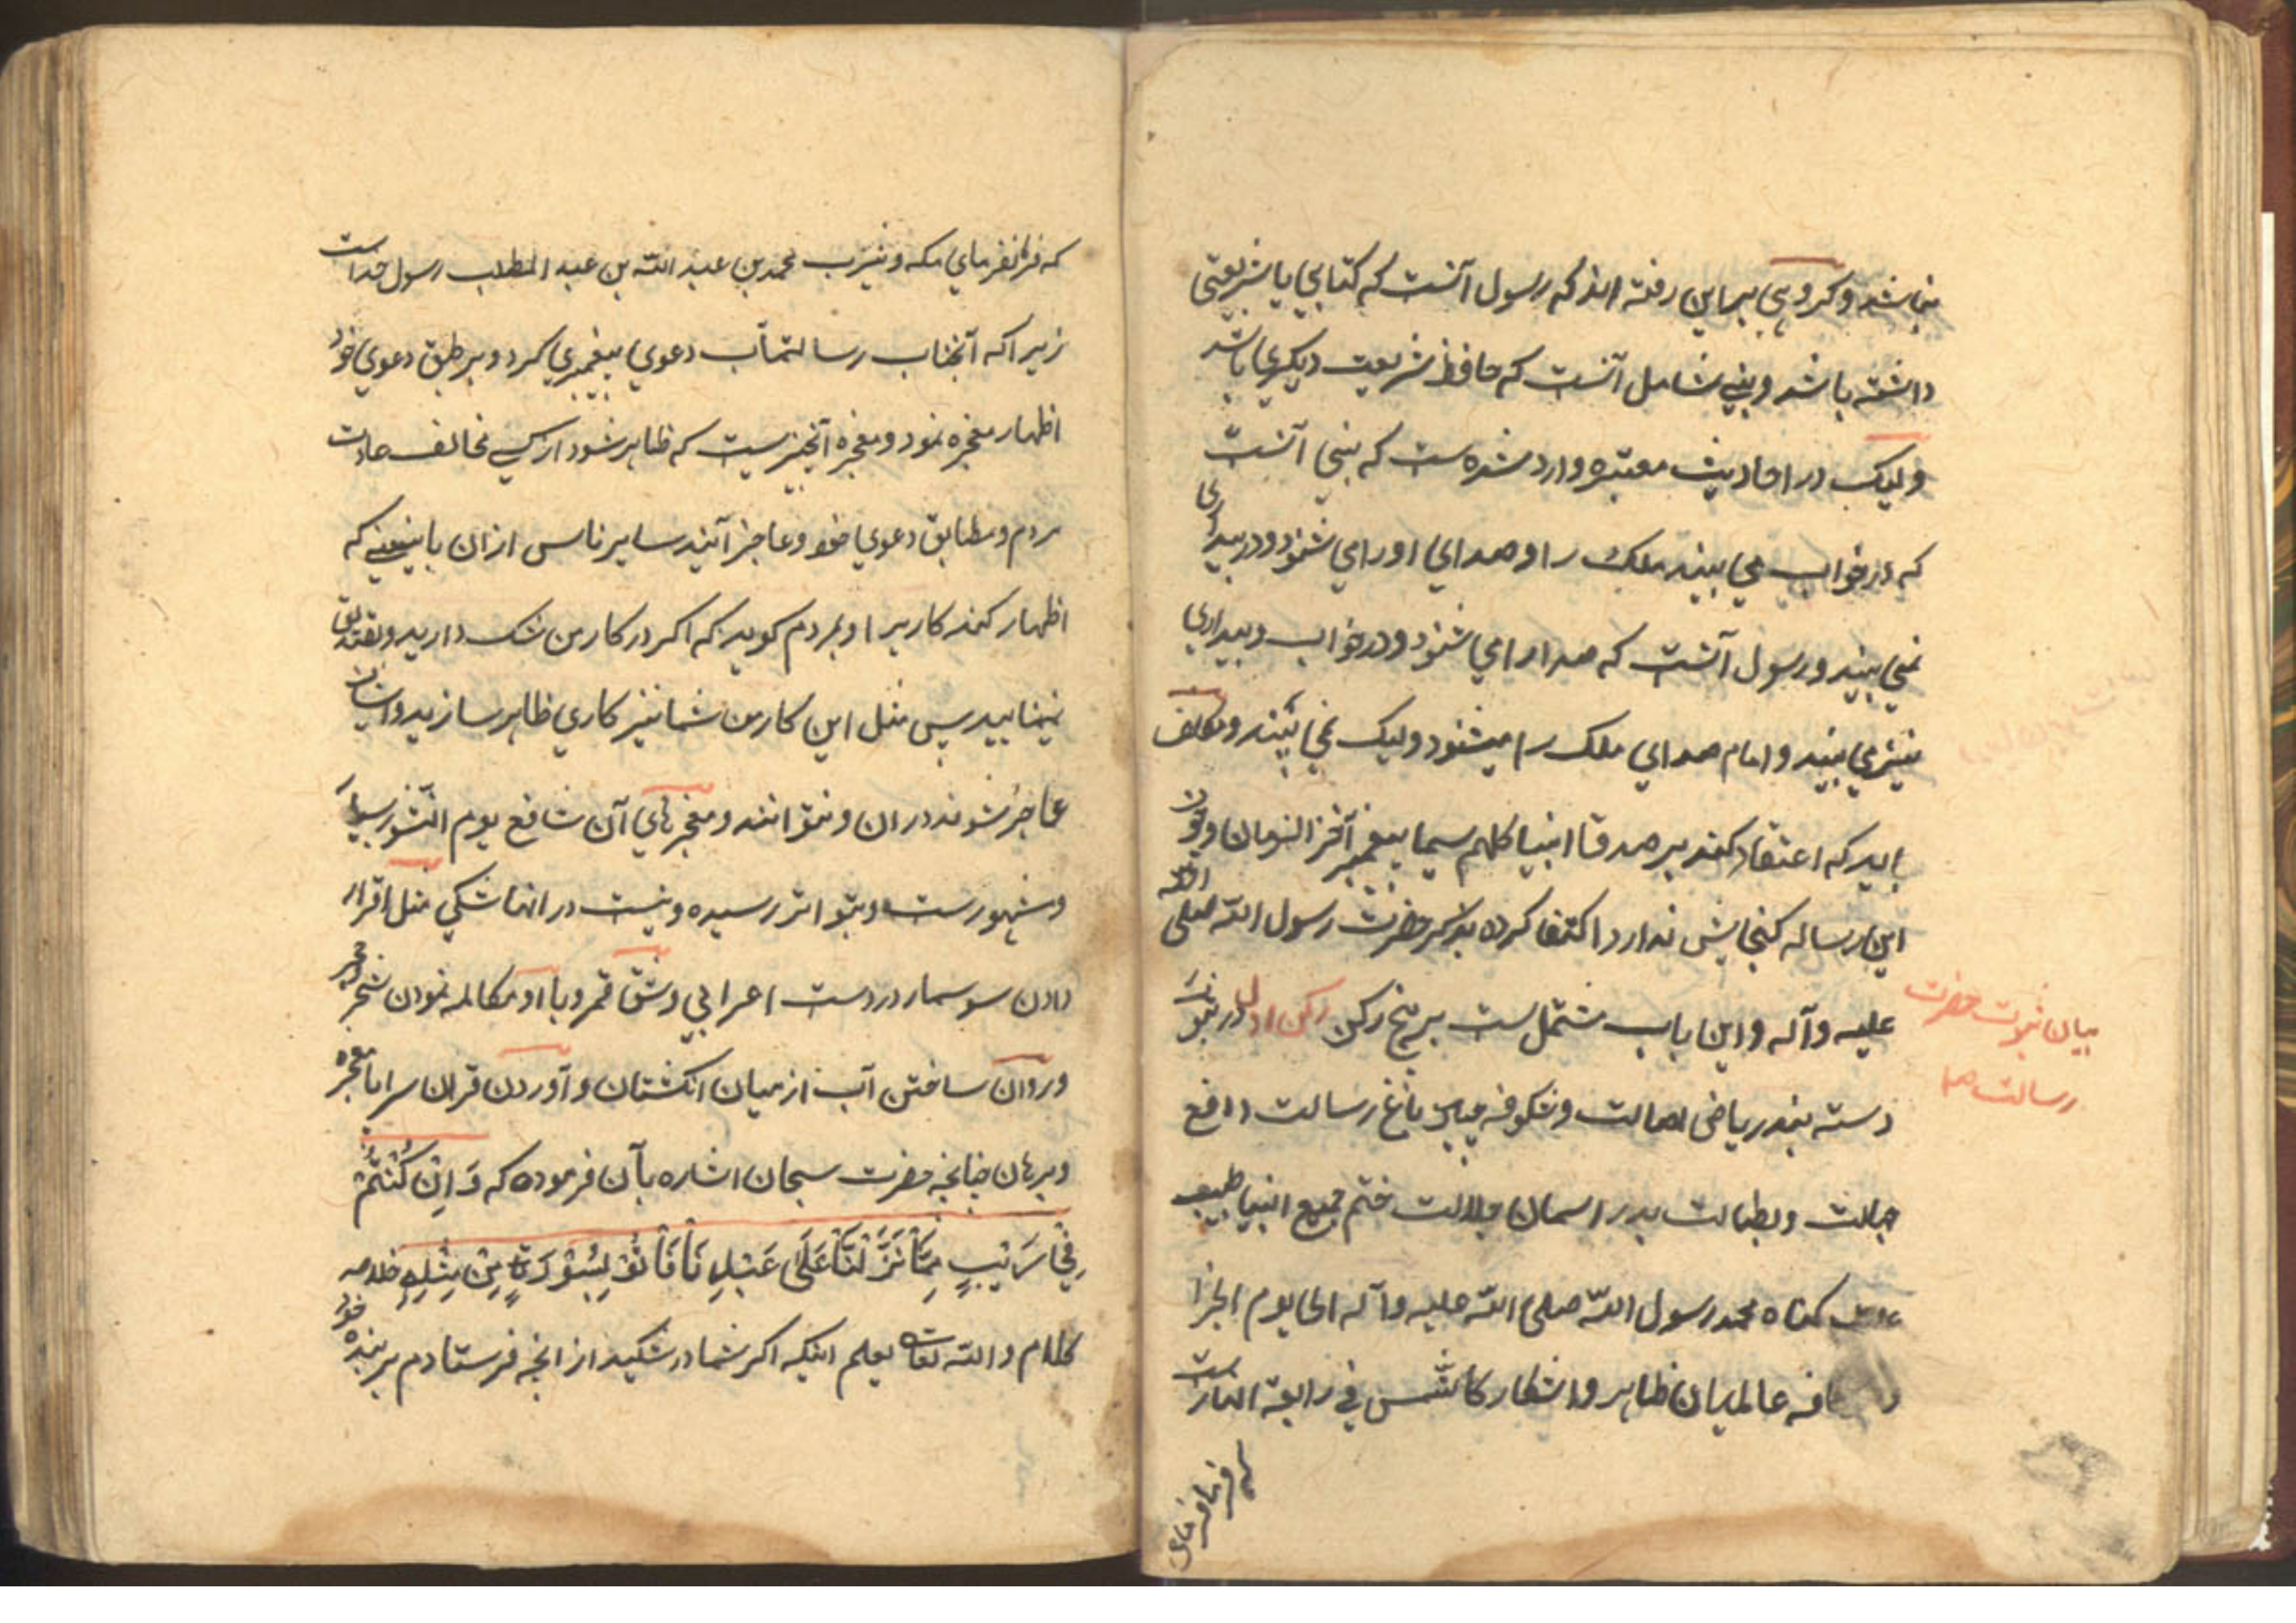 نباشد و کروهی براین رفته اند که رسول آنست که کتابی یا شریعتی
داشته باشد و نبی شامل آنست که حافظ شریعت دیکری باشد
ولیک در احادیث معتبره وارد شده ست که نبی آنست
که در خواب می بیند ملک را و صدای او را می شنود و در بیداری
نمی بیند و رسول آنست که صدا را می شنود و در خواب و بیداری
نیز می بیند و امام صدای ملک را میشنود ولیک نمی بیند و مکلف
باید که اعتقاد کند بر صدق انبیا کلهم سیما پیغمبر آخر الزمان و چون
این رساله کنجایش ندارد اکتفا کرده بذکر حضرت رسول الله صلی الله
علیه وآله و این باب مشتمل ست بر پنج رکن رکن اول در نبوت
بیان نبوت حضرت
رسالت صلم
دسته بند ریاض اصالت و شکوفه باغ رسالت دافع
جهالت و بطالت بدر اسمان جلالت ختم جمیع انبیا طبیب
کناه محمد رسول الله صلی الله علیه وآله الی یوم الجزا
عالمیان ظاهر و اشکار کالشمس فی رابعة النهارست
که فرمانفرمای
که فرمانفرمای مکه و یثرب محمد بن عبد الله بن عبد المطلب رسول خداست
زیرا که آنجناب رسالتمآب دعوی پیغمبری کرد و بر طبق دعوی خود
اظهار معجزه نمود و معجزه آنچیزیست که ظاهر شود از کسی مخالف عادت
مردم و مطابق دعوی خود و عاجز آیند سایر ناس ازان باینمعنی که
اظهار کند کار برا و بمردم کوید که اکر در کار من شک دارید و تصدیق
نمینمایید پس مثل این کار من شما نیز کاری ظاهر سازید و ایشان
عاجز شوند دران و نتوانند و معجزهای آن شافع یوم النشور بسیار
و مشهورست و بتواتر رسیده و نیست در انها شکی مثل اقرار
دادن سوسمار در دست اعرابی و شق قمر و با او مکالمه نمودن شجر و حجر
و روان ساختن آب از میان انکشتان و آوردن قران سراپا معجزه
و برهان چنانچه حضرت سبحان اشاره بآن فرموده که وَ اِنْ كُنْتُمْ
فِي رَيْبٍ مِمَّا نَزَّلْنَا عَلَى عَبْدِنَا فَأْتُوْ بِسُوْرَةٍ مِنْ مِثْلِهِ خلاصه
کلام و الله تعالی یعلم اینکه اکر شما در شکید از انچه فرستادم بر بنده خود